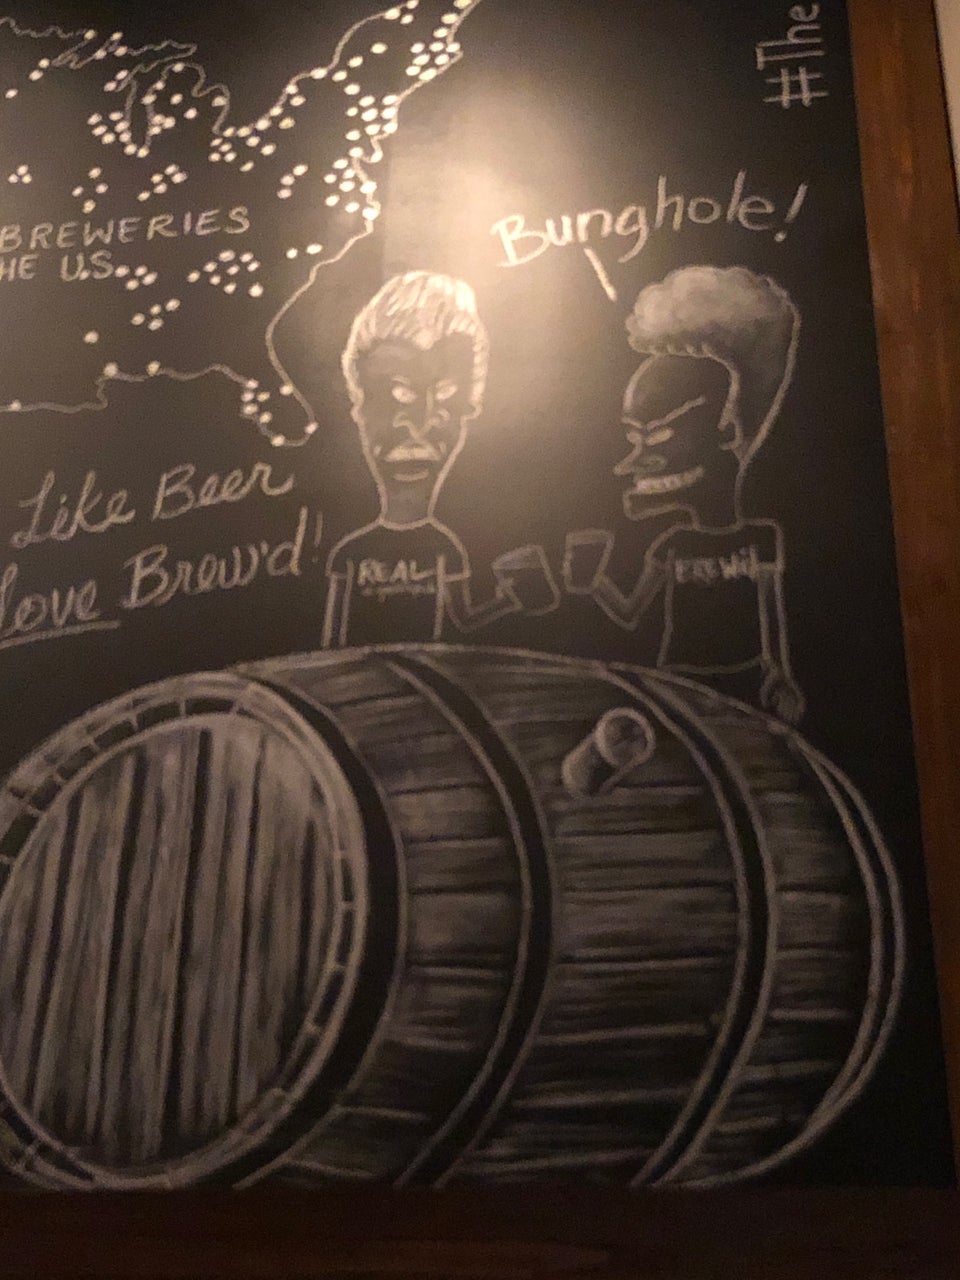 #The
BREWERIES
HE U.S.
Bunghole!
Like Beer
love Brew'd!
REAL
BREW'd